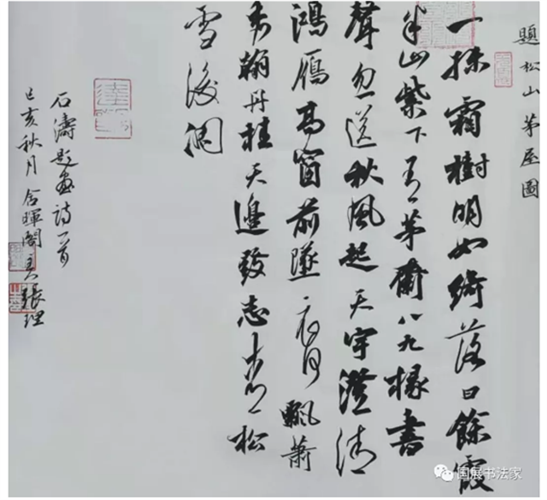 題松山茅屋圖
一抹霜樹明如綺落日餘霞
半山紫下有茅廬八九椽書
聲忽送秋風起天宇澄清
鴻雁高窗前墜月飄蕭
丹桂天邊發志松
雪後凋
石濤題畫詩一首
己亥秋月含暉閣主張理
国展书法家